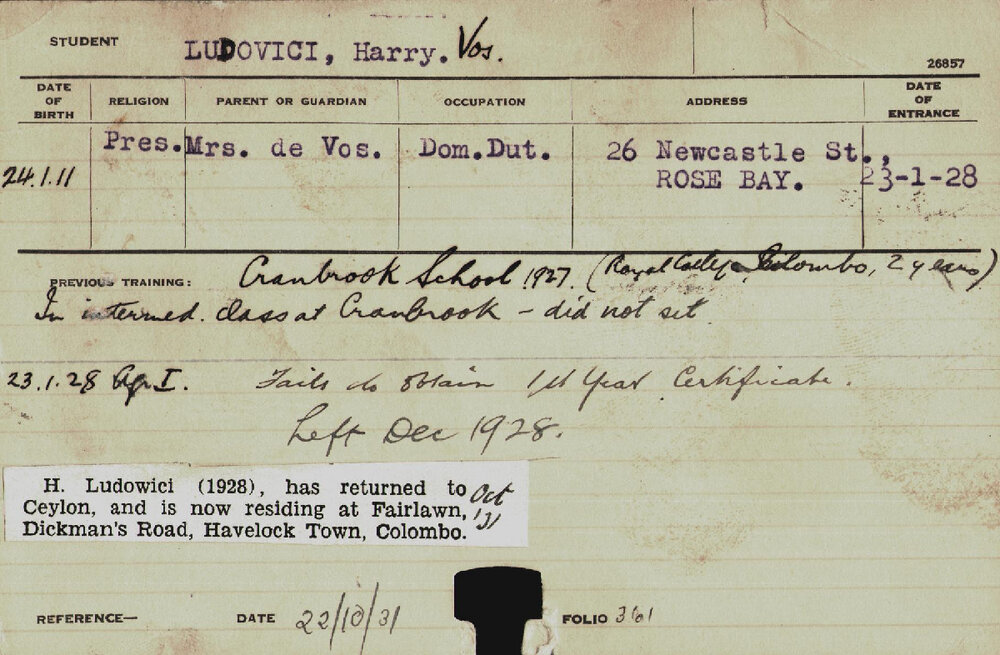 STUDENT LUDOVICI, Harry. Vos.
26857
DATE OF BIRTH RELIGION PARENT OR GUARDIAN OCCUPATION ADDRESS DATE OF ENTRANCE
Pres. Mrs. de Vos. Dom.Dut. 26 Newcastle St.,
24.1.11 ROSE BAY. 23-1-28
PREVIOUS TRAINING: Cranbrook School 1927. (Royal College, Colombo, 2 years)
In intermed. class at Cranbrook - did not sit.
23.1.28 Ag. I. Fails to obtain 1st Year Certificate.
Left Dec 1928.
H. Ludowici (1928), has returned to
Ceylon, and is now residing at Fairlawn,
Dickman's Road, Havelock Town, Colombo.
Oct
'31
REFERENCE— DATE 22/10/31 FOLIO 361